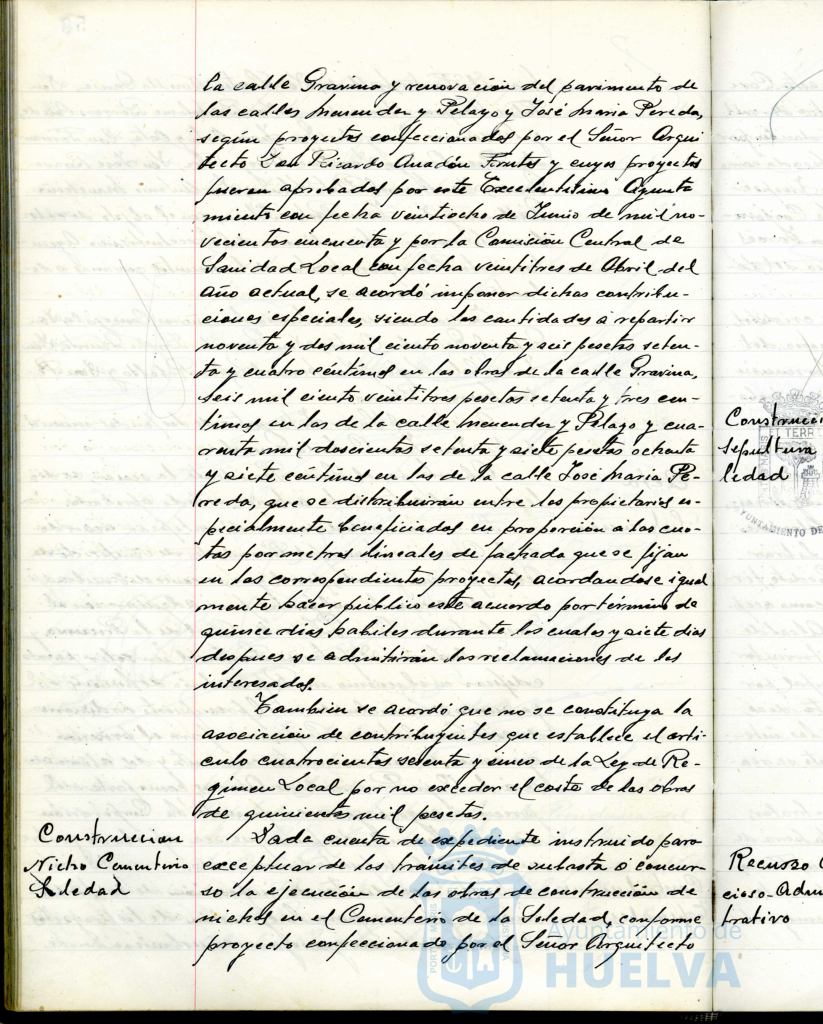 la calle Gravina y renovación del pavimento de
las calles Menender y Pelayo y José Maria Pereda,
según proyectos confeccionados por el Señor Arqui
tecto Don Ricardo Anadón Frutos y cuyos proyectos
fueron aprobados por este Excelentísimo Ayunta
miento con fecha veintiocho de Junio de mil no-
vecientos cincuenta y por la Comisión Central de
Sanidad Local con fecha veintitres de Abril del
año actual, se acordó imponer dichas contribu-
ciones especiales, siendo las cantidades a repartir
noventa y dos mil ciento noventa y seis pesetas seten-
ta y cuatro céntimos en las obras de la calle Gravina,
seis mil ciento veintitres pesetas setenta y tres cen-
timos en las de la calle Menender y Pelayo y cua-
renta mil doscientas setenta y siete pesetas ochenta
y siete céntimos en las de la calle José Maria Pe-
reda, que se distribuirán entre los propietarios es-
pecialmente beneficiados en proporción a las cuo-
tas por metros lineales de fachada que se fijan
en los correspondientes proyectos, acordandose igual
mente hacer público este acuerdo por término de
quince dias habiles durante los cuales y siete dias
despues se admitirán las reclamaciones de los
interesados.
Tambien se acordó que no se constituya la
asociación de contribuyentes que establece el arti-
culo cuatrocientos setenta y cinco de la Ley de Re-
gimen Local por no exceder el coste de las obras
de quinientas mil pesetas.
Construccion
Nicho Cementerio
Soledad
Dada cuenta de expediente instruido para
exceptuar de los trámites de subasta o concur-
so la ejecución de las obras de construcción de
nichos en el Cementerio de la Soledad, conforme
proyecto confeccionado por el Señor Arquitecto
Construcci
Sepultura
ledad
Recurso
cioso-Admi
trativo
Ayuntamiento de
HUELVA